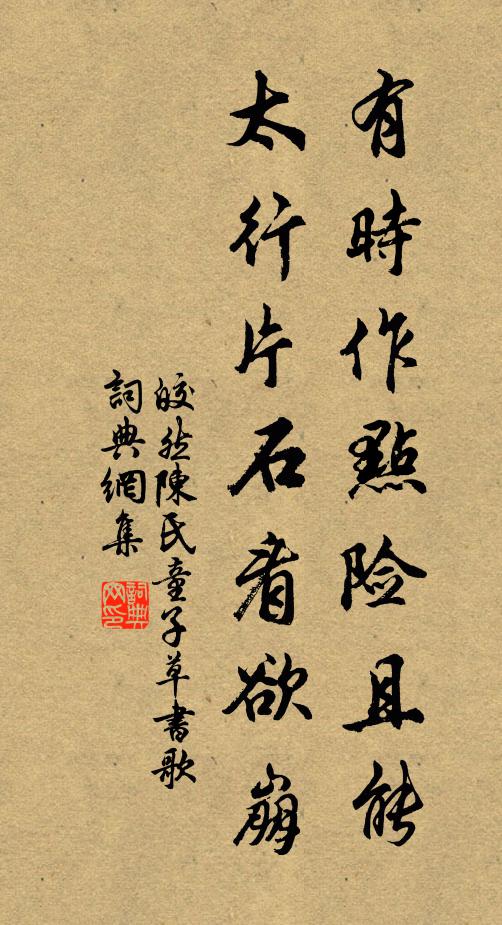 有時作點险且能
太行片石看欲崩
皎然陳氏童子草書歌
詞典網集
詞典
网印